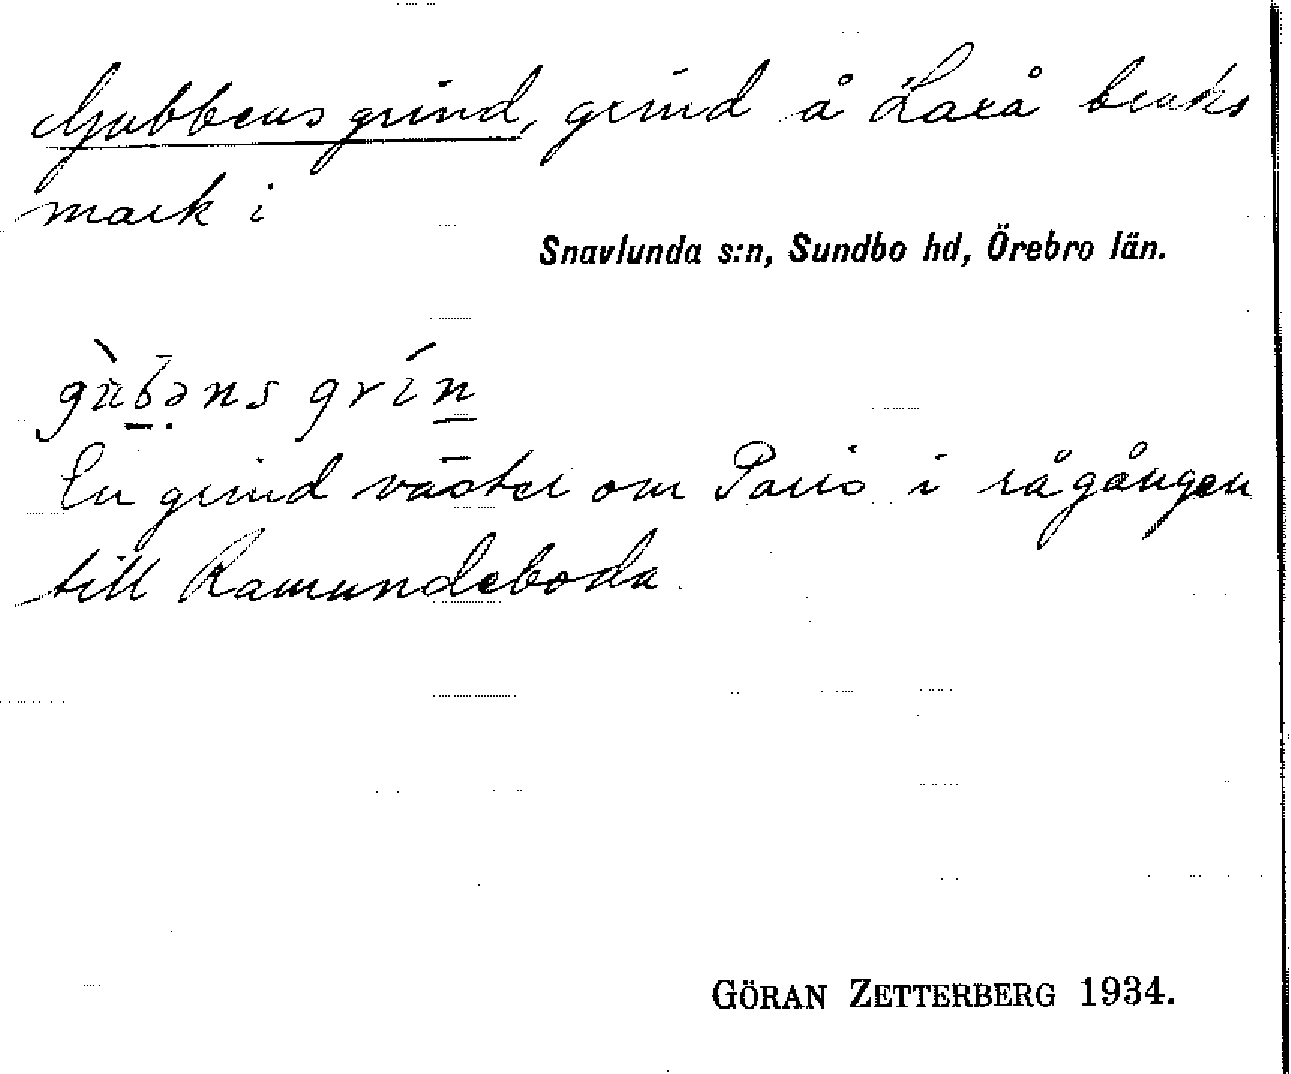 Gubbens grind, grind å Laxå bruks
mark i
Snavlunda s:n, Sundbo hd, Örebro län.
gùbəns grín
En grind väster om Paris i rågången
till Ramundeboda.
GÖRAN ZETTERBERG 1934.